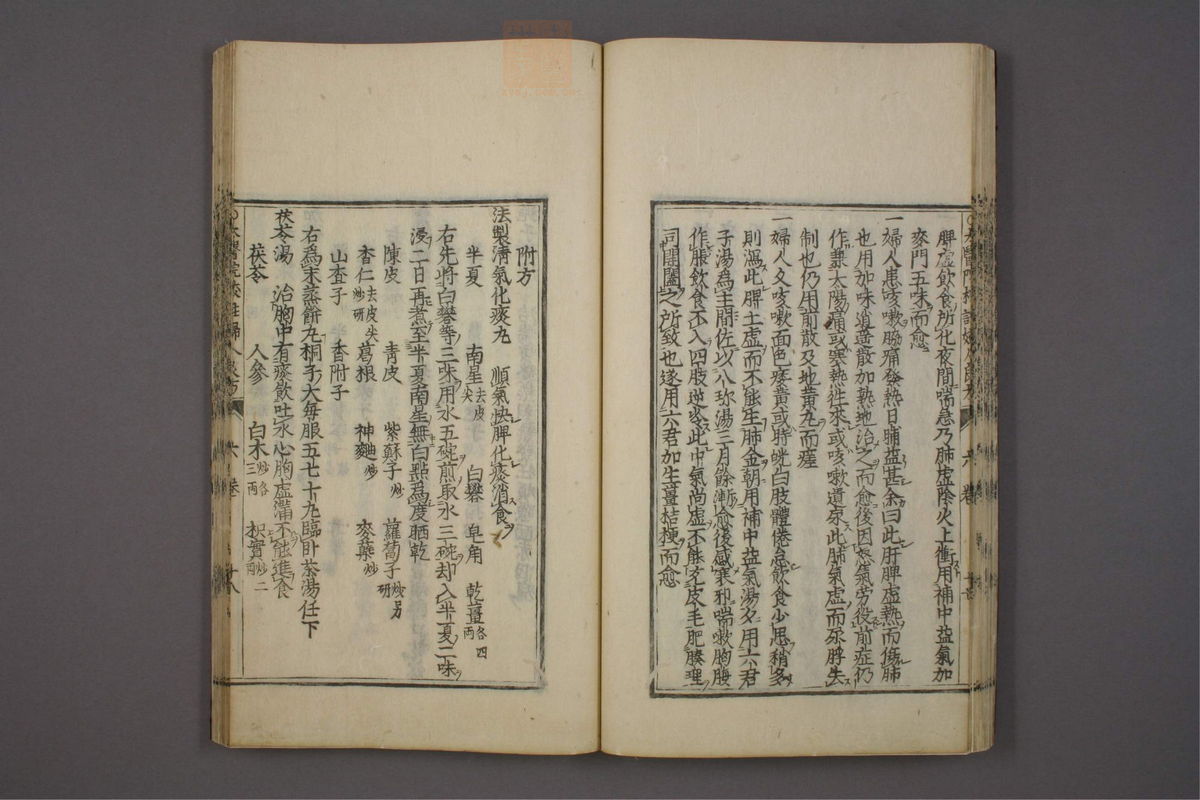 脾虛飲食所化夜間喘急乃肺虛陰火上衝用補中益氣加
麥門五味而愈
一婦人患咳嗽脇痛發熱日晡益甚余曰此肝脾虛熱而傷肺
也用加味逍遙散加熟地治之而愈後因怒氣勞役前症仍
作兼太陽痛或寒熱徃來或咳嗽遺尿此肺氣虛而尿脬失
制也仍用前散及地黃丸而痊
一婦人久咳嗽面色痿黃或時㿠白肢體倦怠飲食少思稍多
則瀉此脾土虛而不能生肺金朝用補中益氣湯夕用六君
子湯為主間佐以八珍湯三月餘漸愈後感寒邪喘嗽胸腹
作脹飲食不入四肢逆冷此中氣尚虛不能充皮毛肥腠理
司開闔之所致也遂用六君加生薑桔梗而愈
附方
法製清氣化痰丸 順氣快脾化痰消食
半夏 南星去皮尖 白礬 皂角 乾薑各四兩
右先將白礬等三味用水五碗煎取水三碗却入半夏二味
浸二日再煮至半夏南星無白點為度晒乾
陳皮 青皮 紫蘇子炒 蘿蔔子炒另研
杏仁去皮尖炒研 葛根 神麯炒 麥蘗炒
山査子 香附子
右為末蒸餅丸桐子大每服五七十丸臨卧茶湯任下
茯苓湯 治胸中有痰飲吐水心胸虛滿不能進食
茯苓 人參 白朮炒各三兩 枳實炒二兩
六卷